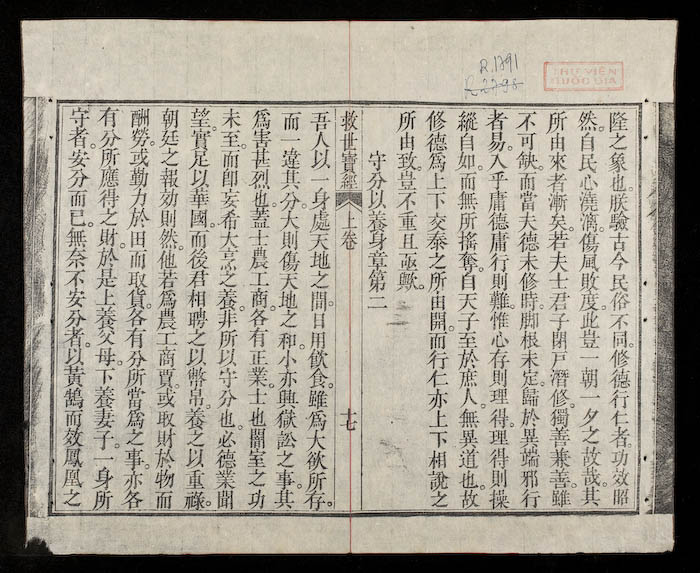 R.1791
R.2798
THƯ VIỆN
QUỐC GIA
隆之象也。朕驗古今民俗不同。修德行仁者。功效昭
然。自民心澆漓。傷風敗度。此豈一朝一夕之故哉。其
所由來者漸矣。若夫士君子閉戶潛修。獨善兼善。雖
不可缺。而當夫德未修時。脚根未定。歸於異端邪行
者易。入乎庸德庸行則難。惟心存則理得。理得則操
縱自如。而無所搖奪。自天子至於庶人。無異道也。故
修德為上下交泰之所由開。而行仁亦上下相說之
所由致。豈不重且亟歟。
守分以養身章第二
救世寶經
上卷
十七
吾人以一身處天地之間。日用飲食。雖為大欲所存。
而一違其分。大則傷天地之和。小亦興獄訟之事。其
為害甚烈也。蓋士農工商。各有正業。士也闇室之功
未至。而即妄希大烹之養。非所以守分也。必德業聞
望。實足以華國。而後君相聘之以幣帛。養之以重祿。
朝廷之報効則然。他若為農工商賈。或取財於物而
酬勞。或勤力於田而取貨。各有分所當為之事。亦各
有分所應得之財。於是上養父母。下養妻子。一身所
守者。安分而已。無奈不安分者。以黃鵠而效鳳凰之